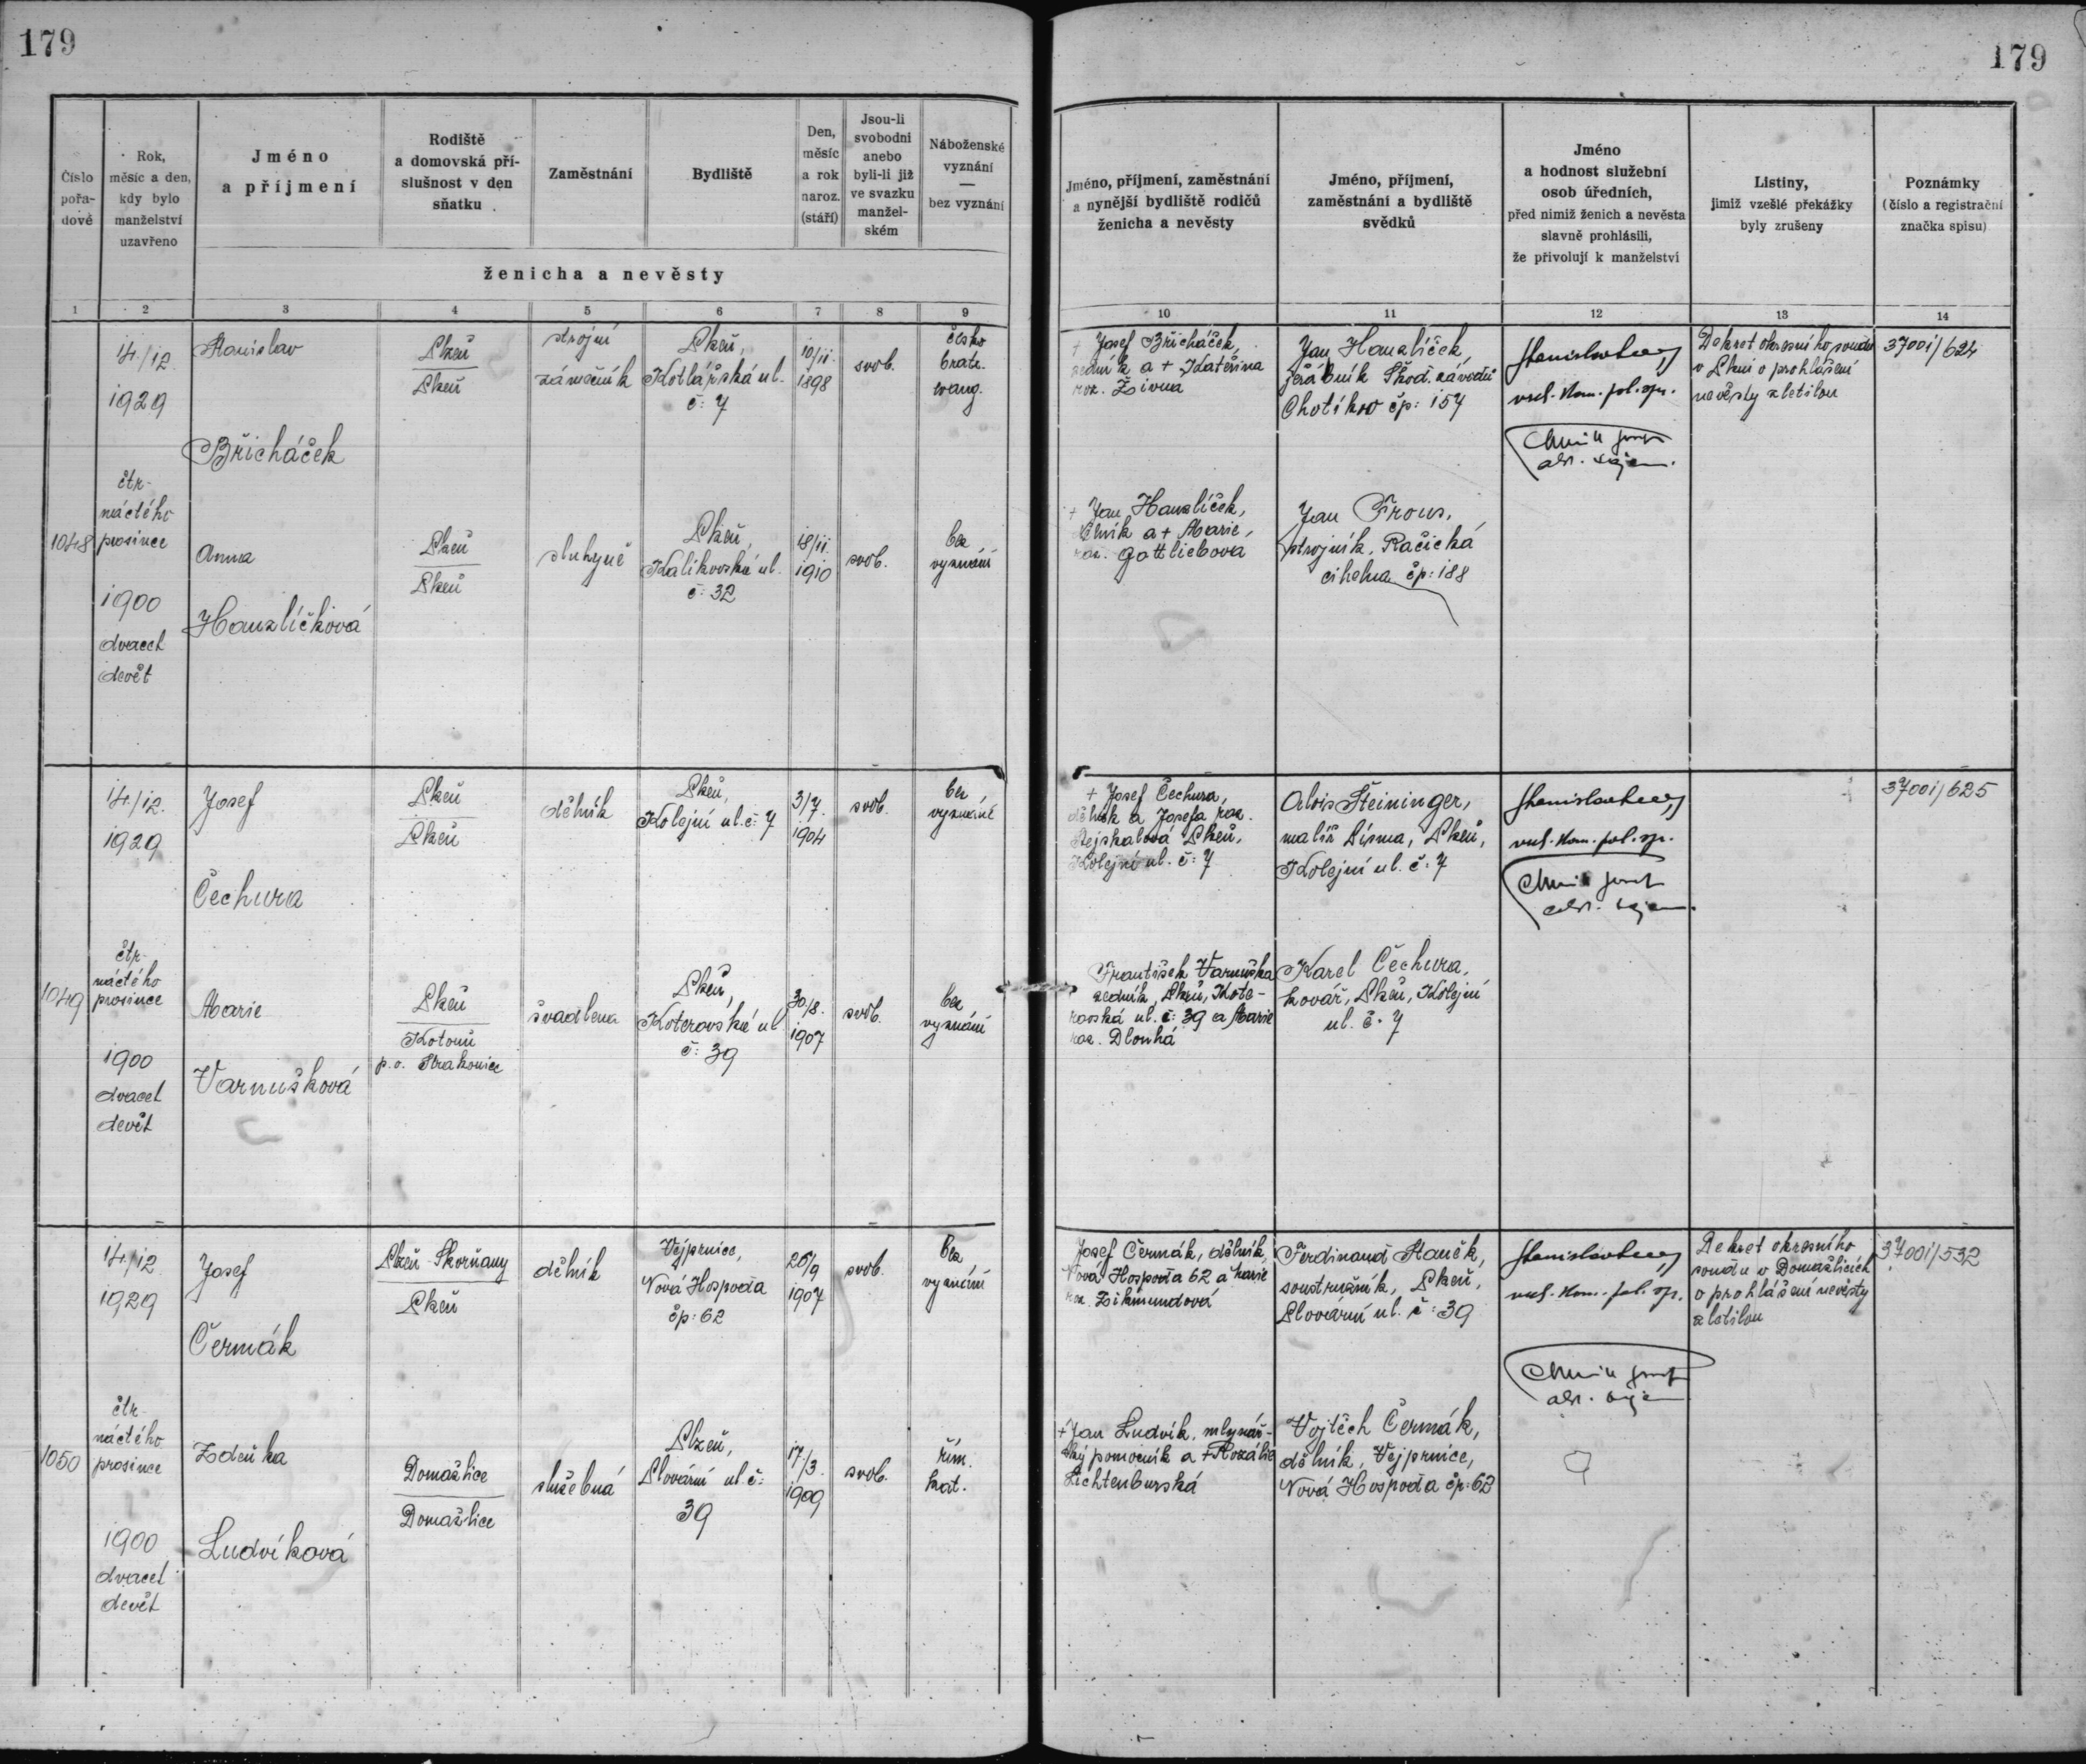 179
179
Číslo
pořa-
dové
Rok,
měsíc a den,
kdy bylo
manželství
uzavřeno
Jméno
a příjmení
Rodiště
a domovská pří-
slušnost v den
sňatku
Zaměstnání
Bydliště
Den,
měsíc
a rok
naroz.
(stáří)
Jsou-li
svobodni
anebo
byli-li již
ve svazku
manžel-
ském
Náboženské
vyznání
—
bez vyznání
ženicha a nevěsty
Jméno, příjmení, zaměstnání
a nynější bydliště rodičů
ženicha a nevěsty
Jméno, příjmení,
zaměstnání a bydliště
svědků
Jméno
a hodnost služební
osob úředních,
před nimiž ženich a nevěsta
slavně prohlásili,
že přivolují k manželství
Listiny,
jimiž vzešlé překážky
byly zrušeny
Poznámky
(číslo a registrační
značka spisu)
1 2 3 4 5 6 7 8 9 10 11 12 13 14
1048
14./12.
1929
čtr-
náctého
prosince
1900
dvacet
devět
Stanislav
Břicháček
Plzeň
Plzeň
strojní
zámečník
Plzeň,
Kotlářská ul.
č: 7
10/11.
1898
svob.
česko
bratr.
evang.
+ Josef Břicháček,
zedník a + Kateřina
roz. Živna
Jan Hanzlíček,
jeřábník Škod. závodů
Chotíkov čp: 157
Dekret okresního soudu
v Plzni o prohlášení
nevěsty zletilou
37001/624
Anna
Hanzlíčková
Plzeň
Plzeň
služyně
Plzeň,
Kalikovská ul.
č: 32
18/11.
1910
svob.
bez
vyznání
+ Jan Hanzlíček,
dělník a + Marie,
roz. Gottliebova
Jan Frous,
strojník, Račická
cihelna čp: 188
1049
14./12.
1929
čtr-
náctého
prosince
1900
dvacet
devět
Josef
Čechura
Plzeň
Plzeň
dělník
Plzeň,
Kolejní ul. č: 7
3/7.
1904
svob.
bez
vyznání
+ Josef Čechura,
dělník a Josefa roz.
Rejskalová Plzeň,
Kolejní ul. č: 7
Alois Šteininger,
malíř písma, Plzeň,
Kolejní ul. č: 7
37001/625
Marie
Varnušková
Plzeň
Kotouň
p. o. Strakonice
švadlena
Plzeň,
Koterovská ul
č: 39
30/8.
1907
svob.
bez
vyznání
František Varnuška
zedník, Plzeň, Kote-
rovská ul. č: 39 a Marie
roz. Dlouhá
Karel Čechura,
kovář, Plzeň, Kolejní
ul. č. 7
1050
14/12
1929
čtr-
náctého
prosince
1900
dvacet
devět
Josef
Čermák
Plzeň Skvrňany
Plzeň
dělník
Vejprnice,
Nová Hospoda
čp: 62
26/9
1907
svob.
bez
vyznání
Josef Čermák, dělník,
Nová Hospoda 62 a Marie
roz. Zikmundová
Ferdinand Staněk,
soustružník, Plzeň,
Plovární ul. č: 39
Dekret okresního
soudu v Domažlicích
o prohlášení nevěsty
zletilou
37001/532
Zdeňka
Ludvíková
Domažlice
Domažlice
služebná
Plzeň,
Plovární ul. č:
39
17./3.
1909
svob.
řím.
kat.
+ Jan Ludvík, mlynář-
ský pomocník a + Rozálie
Lichtenburská
Vojtěch Čermák,
dělník, Vejprnice,
Nová Hospoda čp: 62